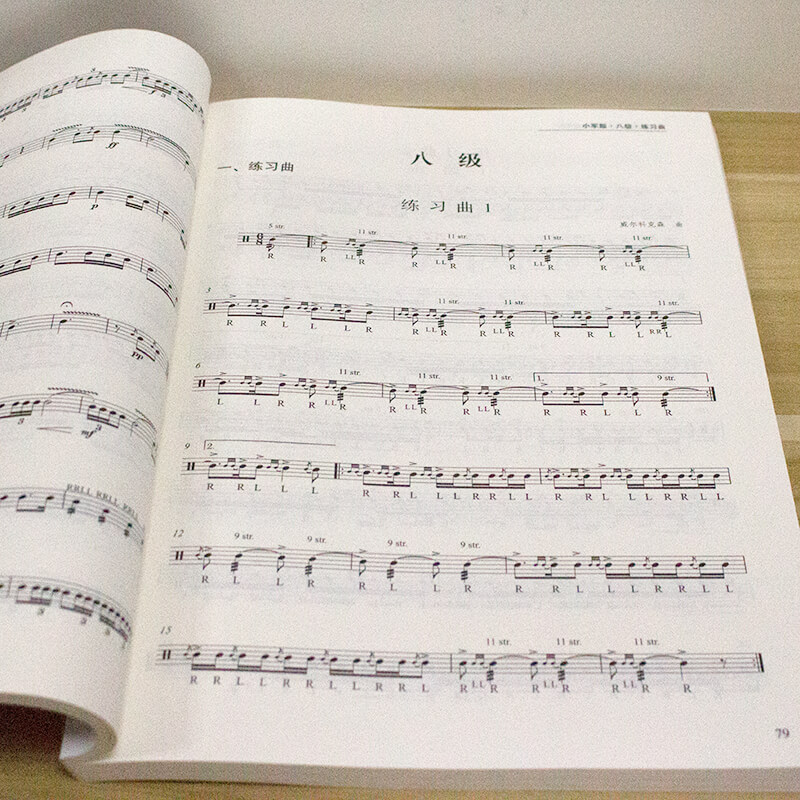 RRLL RRLL RRLL
小军鼓·八级·练习曲
八 级
一、练习曲
练 习 曲 1
威尔科克森 曲
5 str. 11 str. 11 str. 11 str. 11 str.
R R LL R R LL R R LL R R LL R
3 11 str. 11 str. 11 str.
R R L L L R R LL R R LL R R R L L RR L
6 11 str. 11 str. 11 str. 1. 9 str.
L L R R LL R R LL R R LL R R R L L R
9 2.
R R L L R R L L R R L L R R L L R R L L
12 9 str. 9 str. 9 str. 9 str. 9 str.
R L L R R L R R L L R R L L
15 11 str. 11 str. 11 str.
R R L L R R L L R R L R LL R R LL R R LL R
79